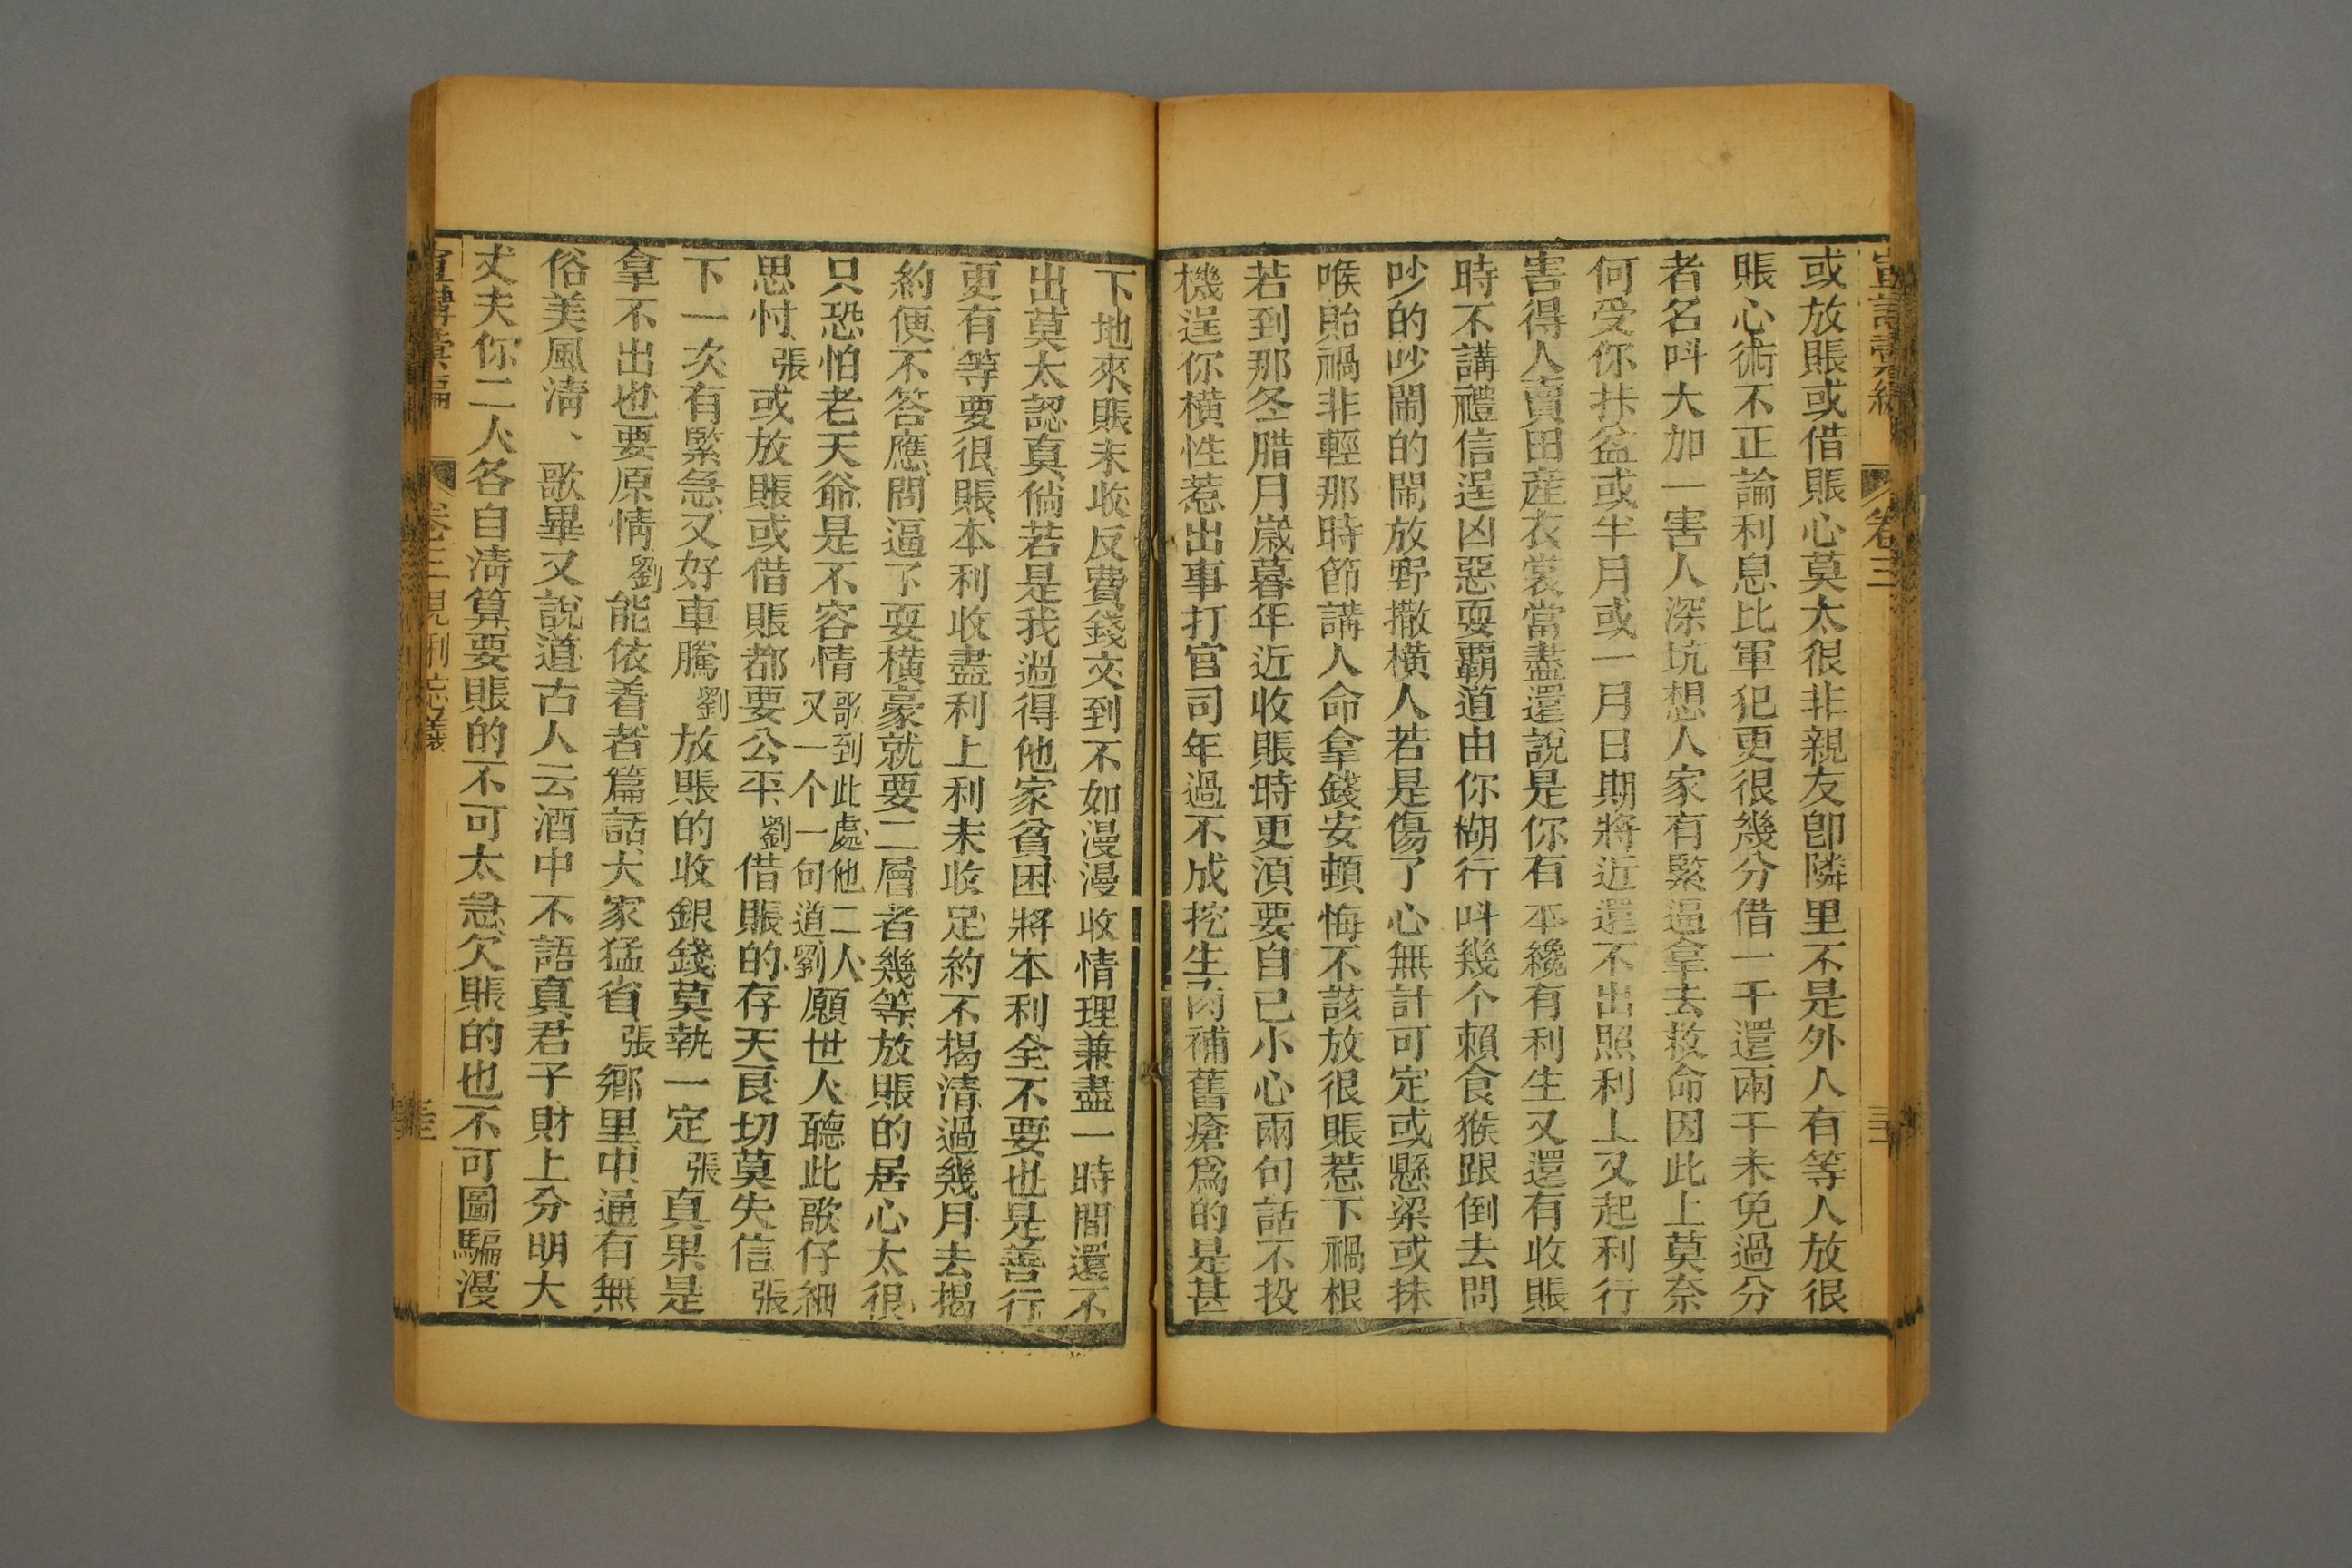 卷三
或放賬或借賬心莫太很非親友卽隣里不是外人有等人放很
賬心術不正論利息比軍犯更很幾分借一千還兩千未免過分
者名呌大加一害人深坑想人家有緊逼拿去救命因此上莫奈
何受你扶盆或半月或一月日期將近還不出照利上又起利行
害得人賣田産衣裳當盡還說是你有本纔有利生又還有收賬
時不講禮信逞凶惡耍覇道由你糊行呌幾个賴食猴跟倒去問
吵的吵鬧的鬧放野撒橫人若是傷了心無計可定或懸梁或抹
喉貽禍非輕那時節講人命拿錢安頓悔不該放很賬惹下禍根
若到那冬腊月歲暮年近收賬時更湏要自己小心兩句話不投
機逞你橫性惹出事打官司年過不成挖生肉補舊瘡爲的是甚
下地來賬未收反費錢文到不如漫漫收情理兼盡一時間還不
出莫太認真倘若是我過得他家貧困將本利全不要也是善行
更有等要很賬本利收盡利上利未收足約不揭清過幾月去揭
約便不答應問逼了耍橫豪就要二層者幾等放賬的居心太很
只恐怕老天爺是不容情歌到此處他二人又一个一句道劉願世人聽此歌仔細
思忖張或放賬或借賬都要公平劉借賬的存天良切莫失信張
下一次有緊急又好車騰劉放賬的收銀錢莫執一定張真果是
拿不出也要原情劉能依着者篇話大家猛省張鄉里中通有無
俗美風清、歌畢又說道古人云酒中不語真君子財上分明大
丈夫你二人各自清算要賬的不可太急欠賬的也不可圖騙漫
卷三 見利忘義